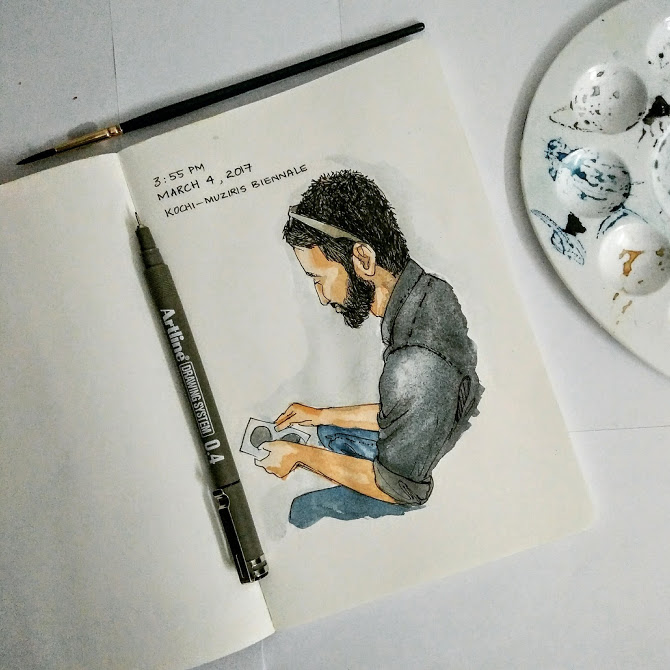 3:55 PM
MARCH 4, 2017
KOCHI-MUZIRIS BIENNALE
Artline
DRAWING SYSTEM
0.4